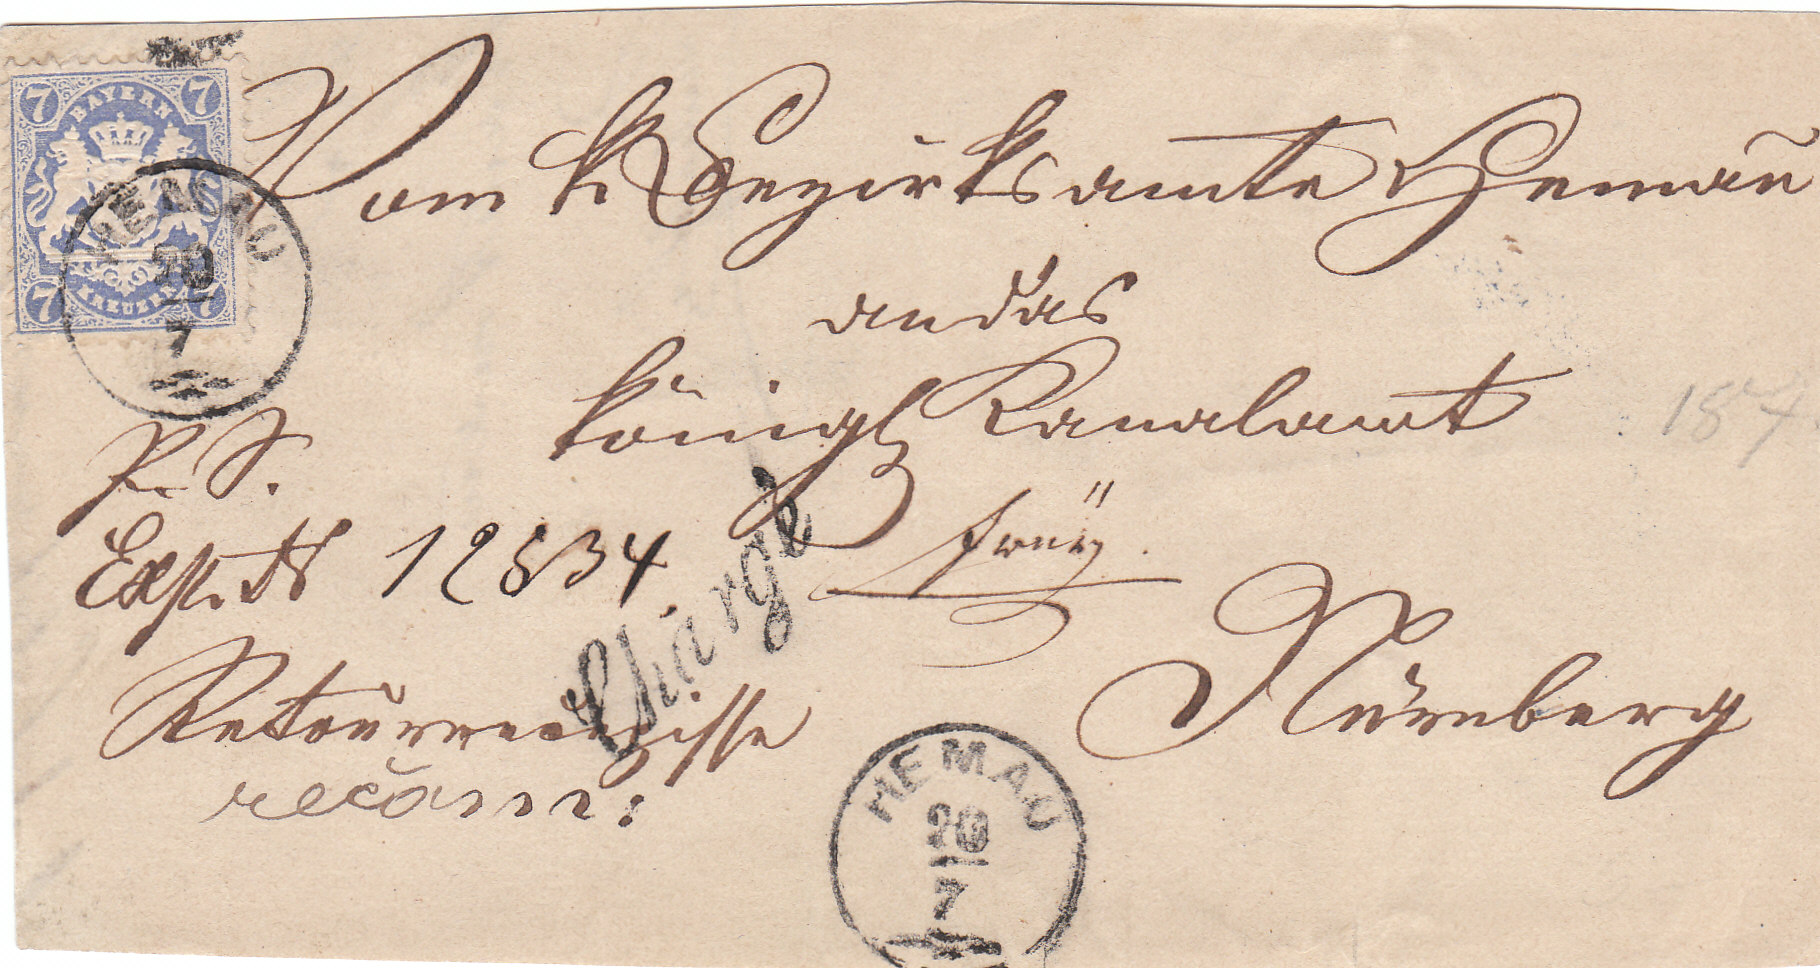 7 7
BAYERN
KREUZER
7 7
HEMAU
20
7
Vom k Bezirksamte Hemau
an das
königl Kanalamt
R. S.
Exp. N 12834.
Chargé
Nürnberg
Retourrecepisse
recom:
HEMAU
20
7